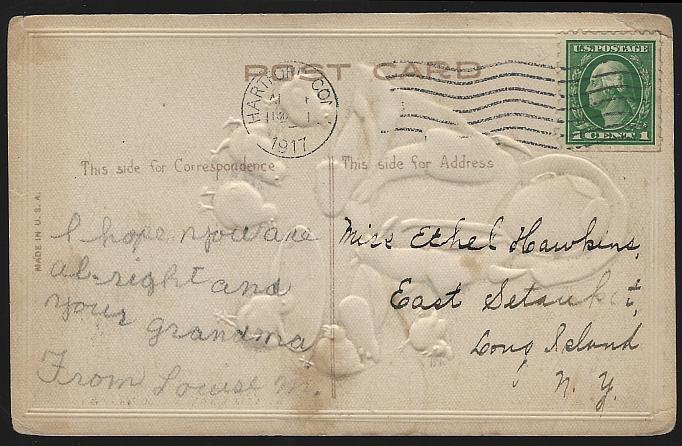 POST CARD
U.S. POSTAGE
1 CENT 1
HARTFORD, CONN
1917
This side for Correspondence
This side for Address
MADE IN U.S.A.
I hope you are
al-right and
your grandma
From Louise M.
Miss Ethel Hawkins,
East Setauket,
Long Island
N. Y.